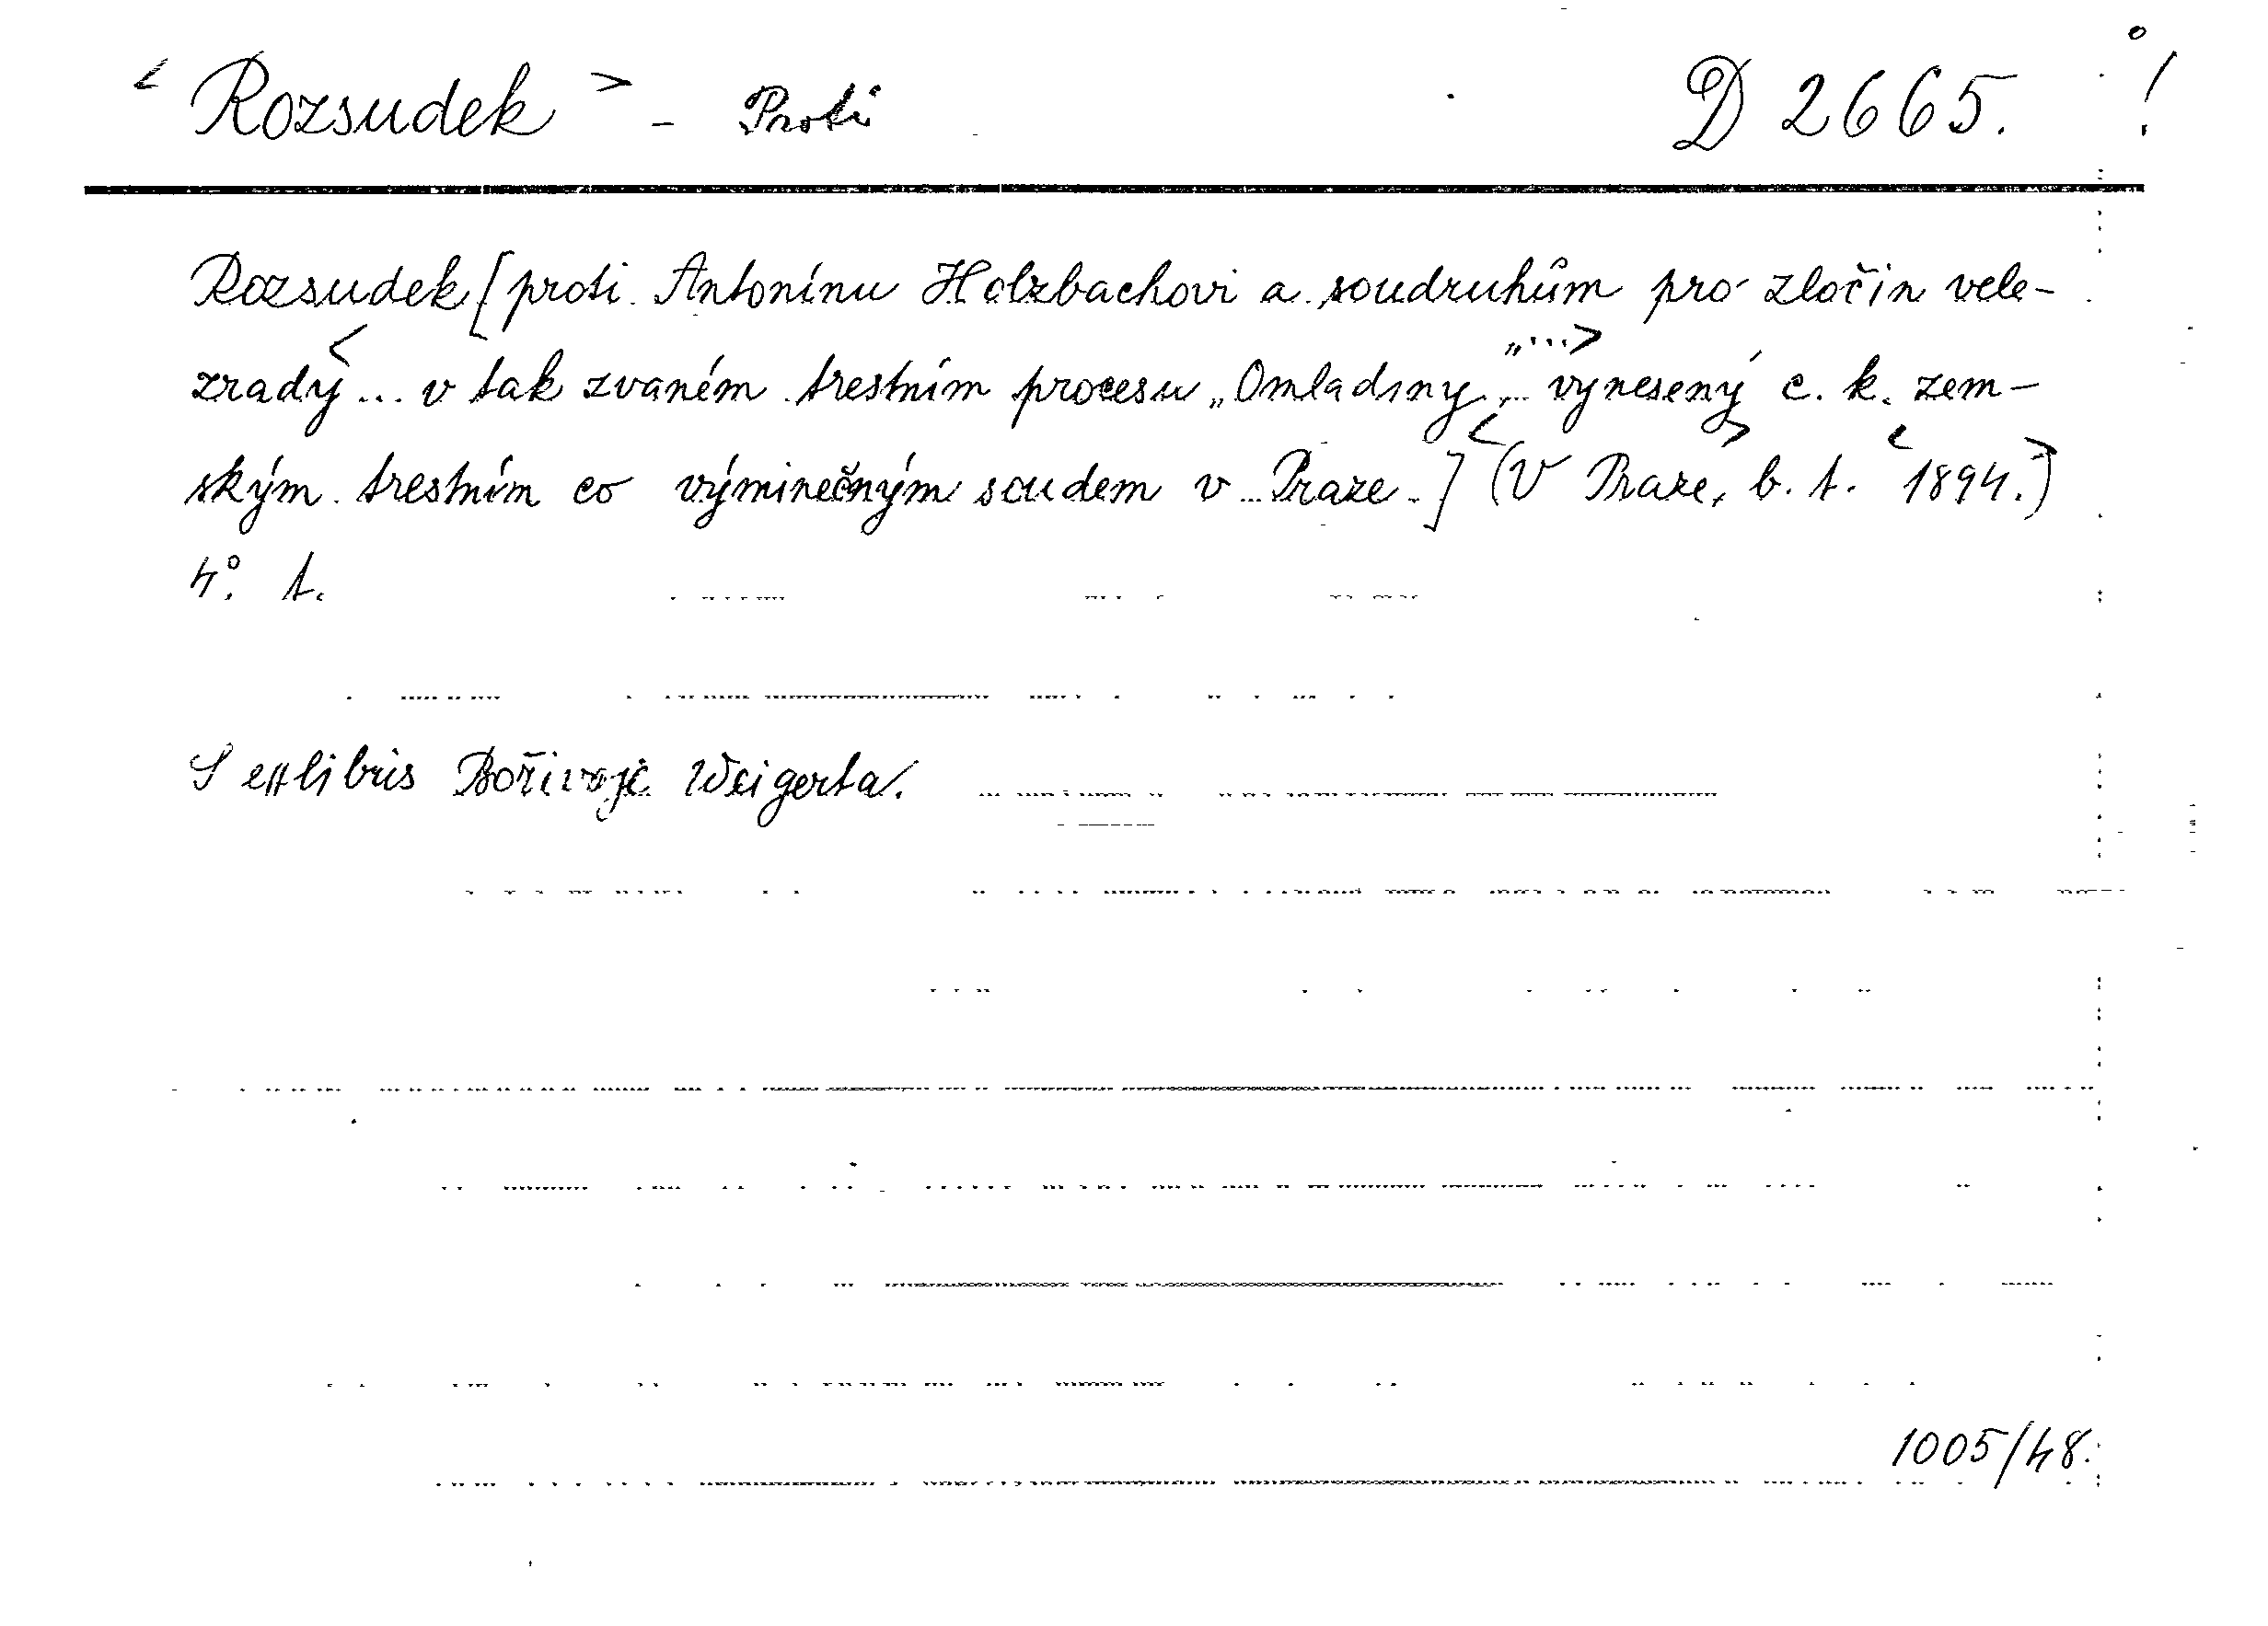 < Rozsudek > - Proti D 2665. !
Rozsudek [proti Antonínu Holzbachovi a soudruhům pro zločin vele-
zrady < ... v tak zvaném trestním procesu „Omladiny" ...> vynesený c. k. zem-
ským trestním co výminečným soudem v Praze.] (< V Praze, > b. t. < 1894. >)
4°. t.
S exlibris Bořivoje Weigerta.
1005/48.